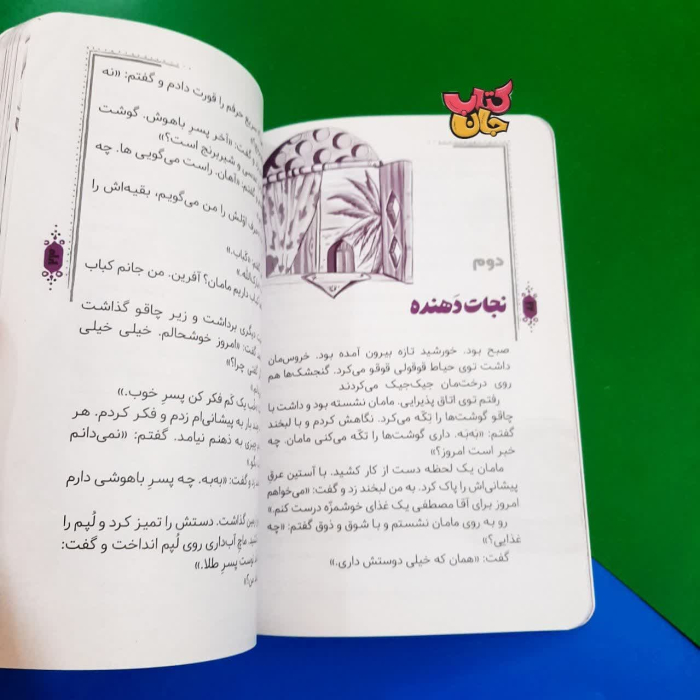 کتاب
جان
دوم
نجات‌دَهنده
صبح بود. خورشید تازه بیرون آمده بود. خروس‌مان
داشت توی حیاط قوقولی قوقو می‌کرد. گنجشک‌ها هم
روی درخت‌مان جیک‌جیک می‌کردند
رفتم توی اتاق پذیرایی. مامان نشسته بود و داشت با
چاقو گوشت‌ها را تکّه می‌کرد. نگاهش کردم و با لبخند
گفتم: «به‌به. داری گوشت‌ها را تکّه می‌کنی مامان. چه
خبر است امروز؟»
مامان یک لحظه دست از کار کشید. با آستین عرقِ
پیشانی‌اش را پاک کرد. به من لبخند زد و گفت: «می‌خواهم
امروز برای آقا مصطفی یک غذای خوشمزّه درست کنم.»
رو به روی مامان نشستم و با شوق و ذوق گفتم: «چه
غذایی؟»
گفت: «همان که خیلی دوستش داری.»
حرفم را قورت دادم و گفتم: «نه
گفت: «آخر پسرِ باهوش. گوشت
و شیربرنج است؟»
«آهان. راست می‌گویی ها. چه
اوّلش را من می‌گویم، بقیه‌اش را
«کباب.»
کباب داریم مامان؟ آفرین. من جانم کباب
دیگری برداشت و زیر چاقو گذاشت
گفت: «امروز خوشحالم. خیلی خیلی
چرا؟»
یک کَم فکر کن پسرِ خوب.»
بار به پیشانی‌ام زدم و فکر کردم. هر
چیزی به ذهنم نیامد. گفتم: «نمی‌دانم
زد و گفت: «به‌به. چه پسرِ باهوشی دارم
زمین گذاشت. دستش را تمیز کرد و لُپم را
ماچِ آب‌داری روی لُپم انداخت و گفت:
پسرِ طلا.»
۲۴